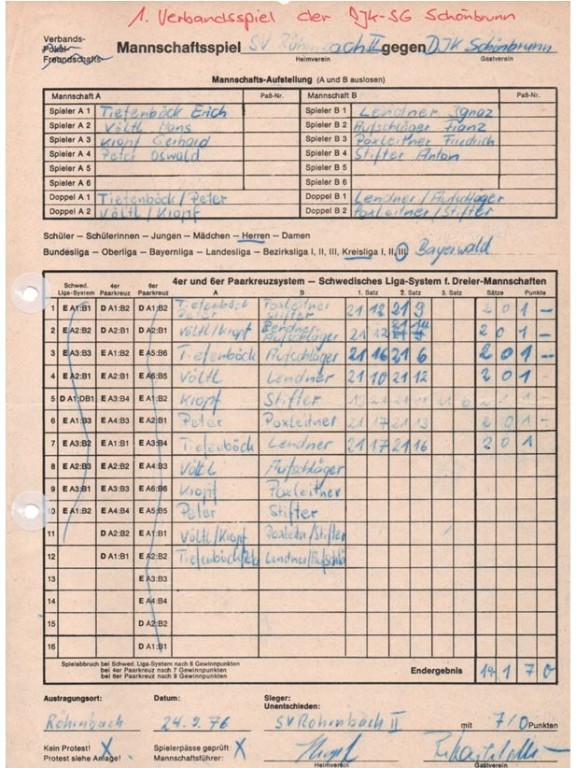 1. Verbandsspiel der DJK-SG Schönbrunn
Verbands-
Pokal-
Freundschafts-
Mannschaftsspiel SV Röhrnbach II gegen DJK Schönbrunn
Heimverein Gastverein
Mannschafts-Aufstellung (A und B auslosen)
Mannschaft A Paß-Nr. Mannschaft B Paß-Nr.
Spieler A 1 Tiefenböck Erich Spieler B 1 Lendner Ignaz
Spieler A 2 Völtl Hans Spieler B 2 Aufschläger Franz
Spieler A 3 Kropf Gerhard Spieler B 3 Poxleitner Friedrich
Spieler A 4 Peter Oswald Spieler B 4 Stifter Anton
Spieler A 5 Spieler B 5
Spieler A 6 Spieler B 6
Doppel A 1 Tiefenböck/Peter Doppel B 1 Lendner/Aufschläger
Doppel A 2 Völtl/Kropf Doppel B 2 Poxleitner/Stifter
Schüler – Schülerinnen – Jungen – Mädchen – Herren – Damen
Bundesliga – Oberliga – Bayernliga – Landesliga – Bezirksliga I, II, III, Kreisliga I, II, III Bayerwald
4er und 6er Paarkreuzsystem – Schwedisches Liga-System f. Dreier-Mannschaften
Schwed. Liga-System 4er Paarkreuz 6er Paarkreuz A B 1. Satz 2. Satz 3. Satz Sätze Punkte
1 E A1:B1 D A1:B2 D A1:B2 Tiefenböck Peter Poxleitner Stifter 21 12 21 9 2 0 1 –
2 E A2:B2 D A2:B1 D A2:B1 Völtl/Kropf Lendner Aufschläger 21 12 21 14 2 0 1 –
3 E A3:B3 E A1:B2 E A5:B6 Tiefenböck Aufschläger 21 16 21 6 2 0 1 –
4 E A2:B1 E A2:B1 E A6:B5 Völtl Lendner 21 10 21 12 2 0 1 –
5 D A1:DB1 E A3:B4 E A1:B2 Kropf Stifter
6 E A1:B3 E A4:B3 E A2:B1 Peter Poxleitner 21 17 21 13 2 0 1 –
7 E A3:B2 E A1:B1 E A3:B4 Tiefenböck Lendner 21 17 21 16 2 0 1
8 E A2:B3 E A2:B2 E A4:B3 Völtl Aufschläger
9 E A3:B1 E A3:B3 E A6:B6 Kropf Poxleitner
10 E A1:B2 E A4:B4 E A5:B5 Peter Stifter
11 D A2:B2 E A1:B1 Völtl/Kropf Poxleitn/Stifter
12 D A1:B1 E A2:B2
13 E A3:B3
14 E A4:B4
15 D A2:B2
16 D A1:B1
Spielabbruch bei Schwed. Liga-System nach 6 Gewinnpunkten
bei 4er Paarkreuz nach 7 Gewinnpunkten
bei 6er Paarkreuz nach 9 Gewinnpunkten
Endergebnis 14 1 7 0
Austragungsort: Datum: Sieger:
Unentschieden:
Röhrnbach 24.9.76 SV Röhrnbach II mit 7/0 Punkten
Kein Protest! X Spielerpässe geprüft X
Protest siehe Anlage! Mannschaftsführer:
Heimverein Gastverein